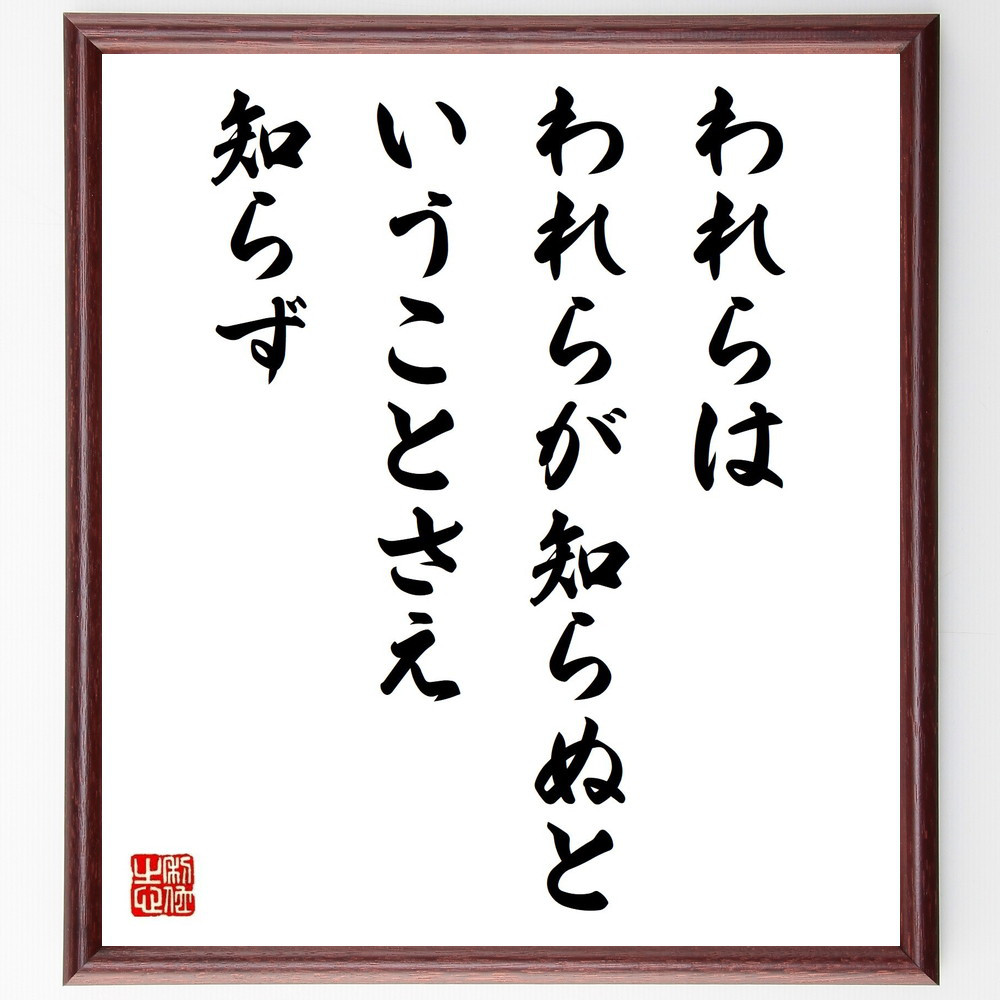 われらは
われらが知らぬと
いうことさえ
知らず